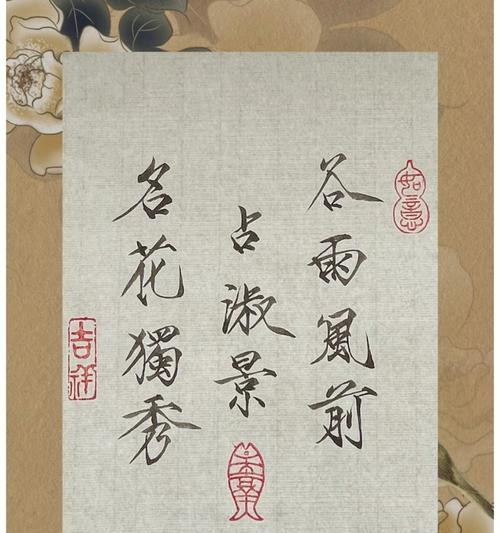 如意
谷雨風前
占淑景
名花獨秀
吉祥